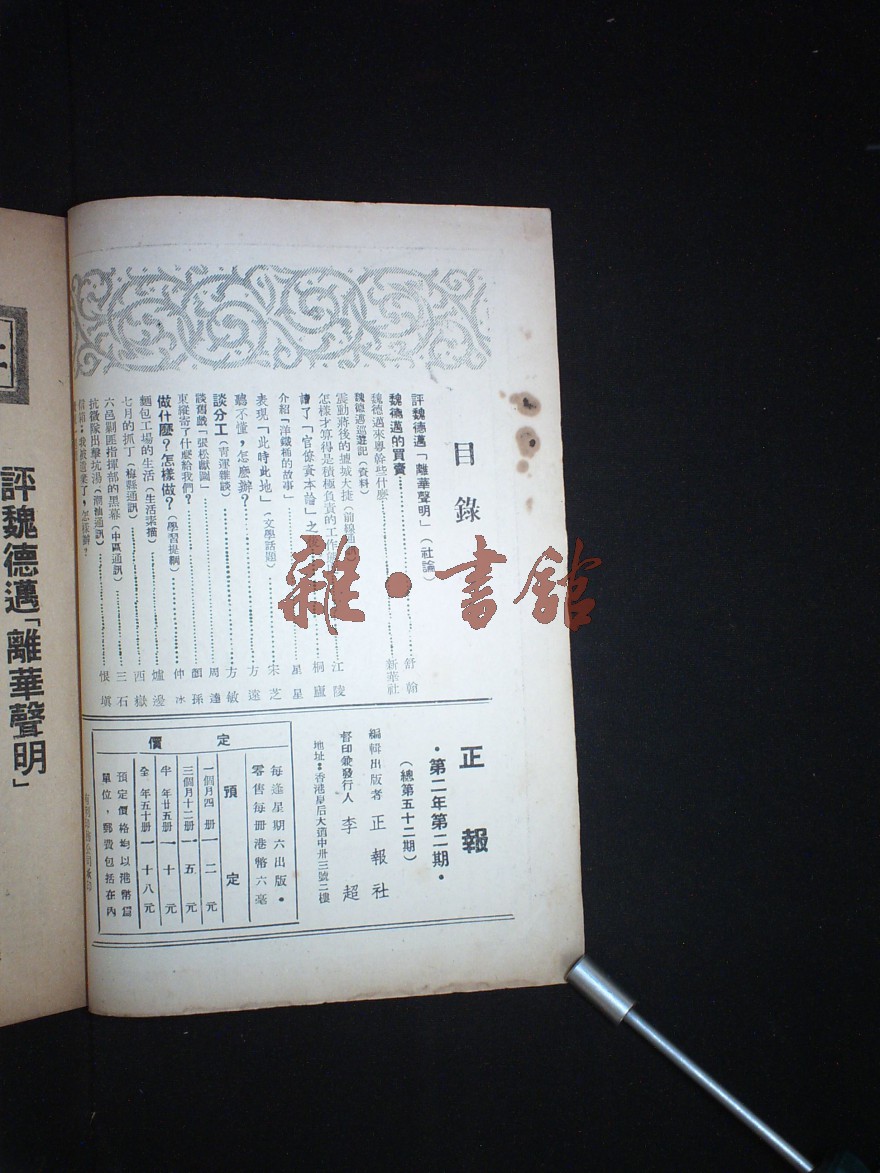 目錄
評魏德邁「離華聲明」(社論)
魏德邁的買賣 舒翰
魏德邁來粵幹些什麼 新華社
魏德邁巡遊記(資料)
震動蔣後的壚城大捷(前線通訊)
怎樣才算得是積極負責的工作 江陵
讀了「官僚資本論」之後 桐廬
介紹「洋鐵桶的故事」 星星
表現「此時此地」(文學話題) 宋芝
聽不懂,怎麼辦? 方遠
談分工(青運雜談) 方敏
談舊戲「張松獻圖」 周達
東縱寄了什麼給我們? 顏孫
做什麼?怎樣做?(學習提綱) 仲冰
麵包工場的生活(生活素描) 爐邊
七月的抓丁(梅縣通訊) 西嶽
六邑剿匪指揮部的黑幕(中區通訊) 三石
抗徵隊出擊坑湯(潮汕通訊) 恨塡
信箱:我被遺棄了,怎樣辦?
正報
·第二年第二期·
(總第五十二期)
編輯出版者 正報社
督印兼發行人 李超
地址:香港皇后大道中卅三號二樓
定價
每逢星期六出版·
零售每册港幣六毫
預定
一個月四册 一二元
三個月十二册 一五元
半年廿五册 一十元
全年五十册 一十八元
預定價格均以港幣爲
單位,郵費包括在內
評魏德邁「離華聲明」
雜·書館